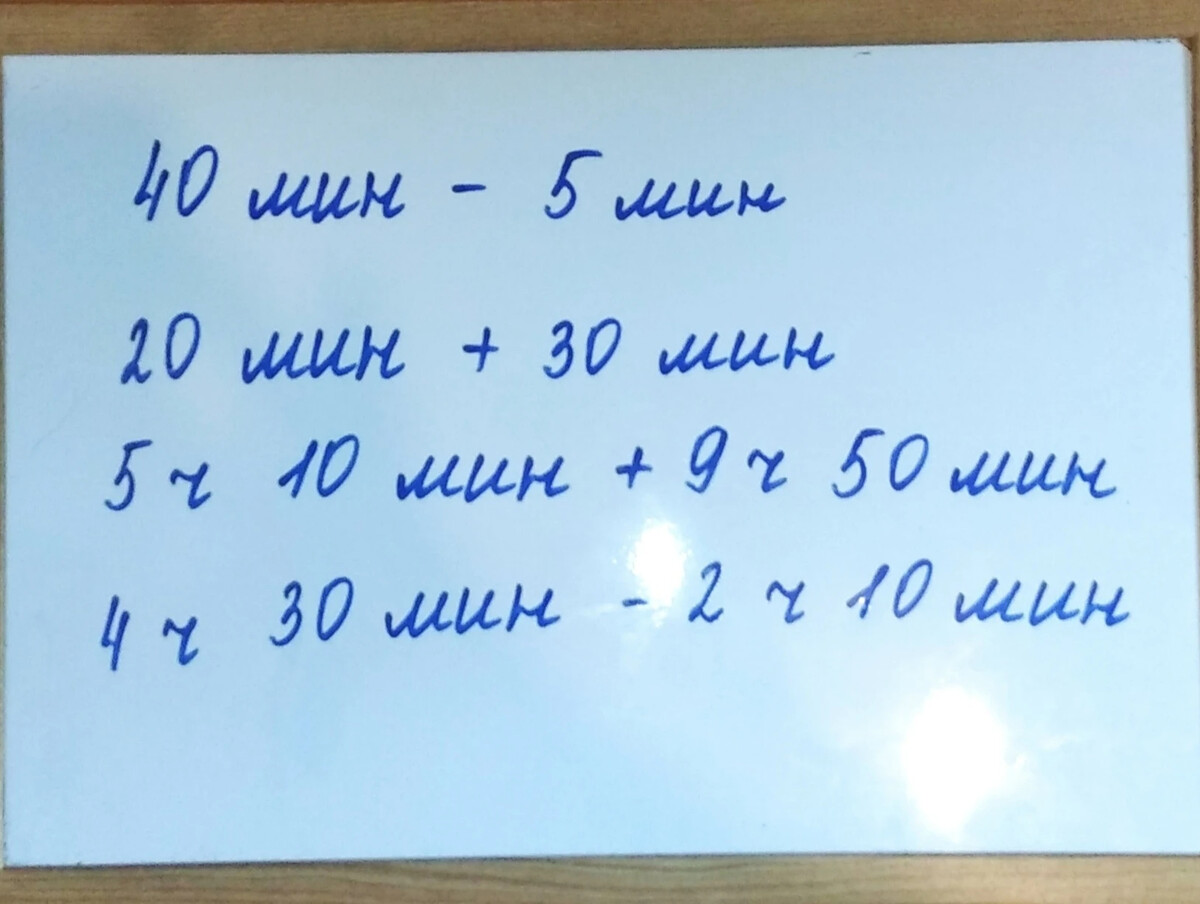 40 мин - 5 мин
20 мин + 30 мин
5 ч 10 мин + 9 ч 50 мин
4 ч 30 мин - 2 ч 10 мин